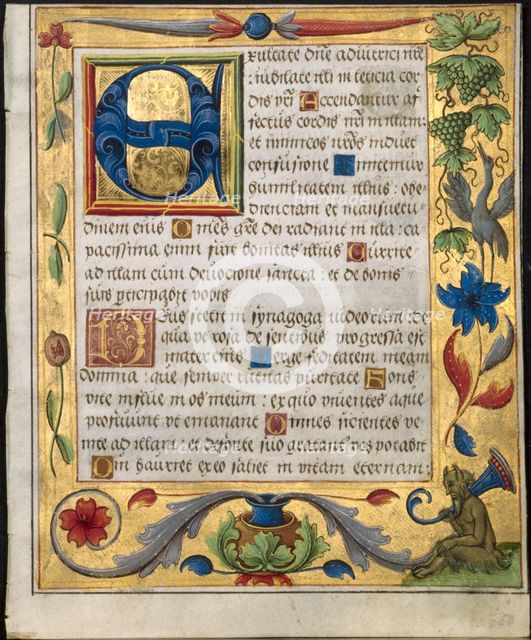 Exultate dñe adiutrici nre
: iubilate illi in leticia cor
dis vrĩ Accendantur af
fectus cordis vrĩ in illam:
et inimicos vrõs induet
confusione Imitemur
humilitatem illius: obe
dienciam et mansuetu
dinem eius Omẽs grẽ dei radiant in illa: ca
pacissima enim fuit bonitas illius Currite
ad illam cum deuocione sancta: et de bonis
suis
Deus stetit in synagoga iudeorum: de
qua ve rosa de sentibus progressa est
mater eius Terge feditatem meam
domina: que semper rutilas puritate Fons
vite influe in os meum: ex quo viuentes aque
profluunt et emanant Omnes sicientes ve
nite ad illam: et de fonte suo gratanter vos potabit
Qui haurret ex eo saliet in vitam eternam:
Heritage
Heritage
Heritage
Heritage